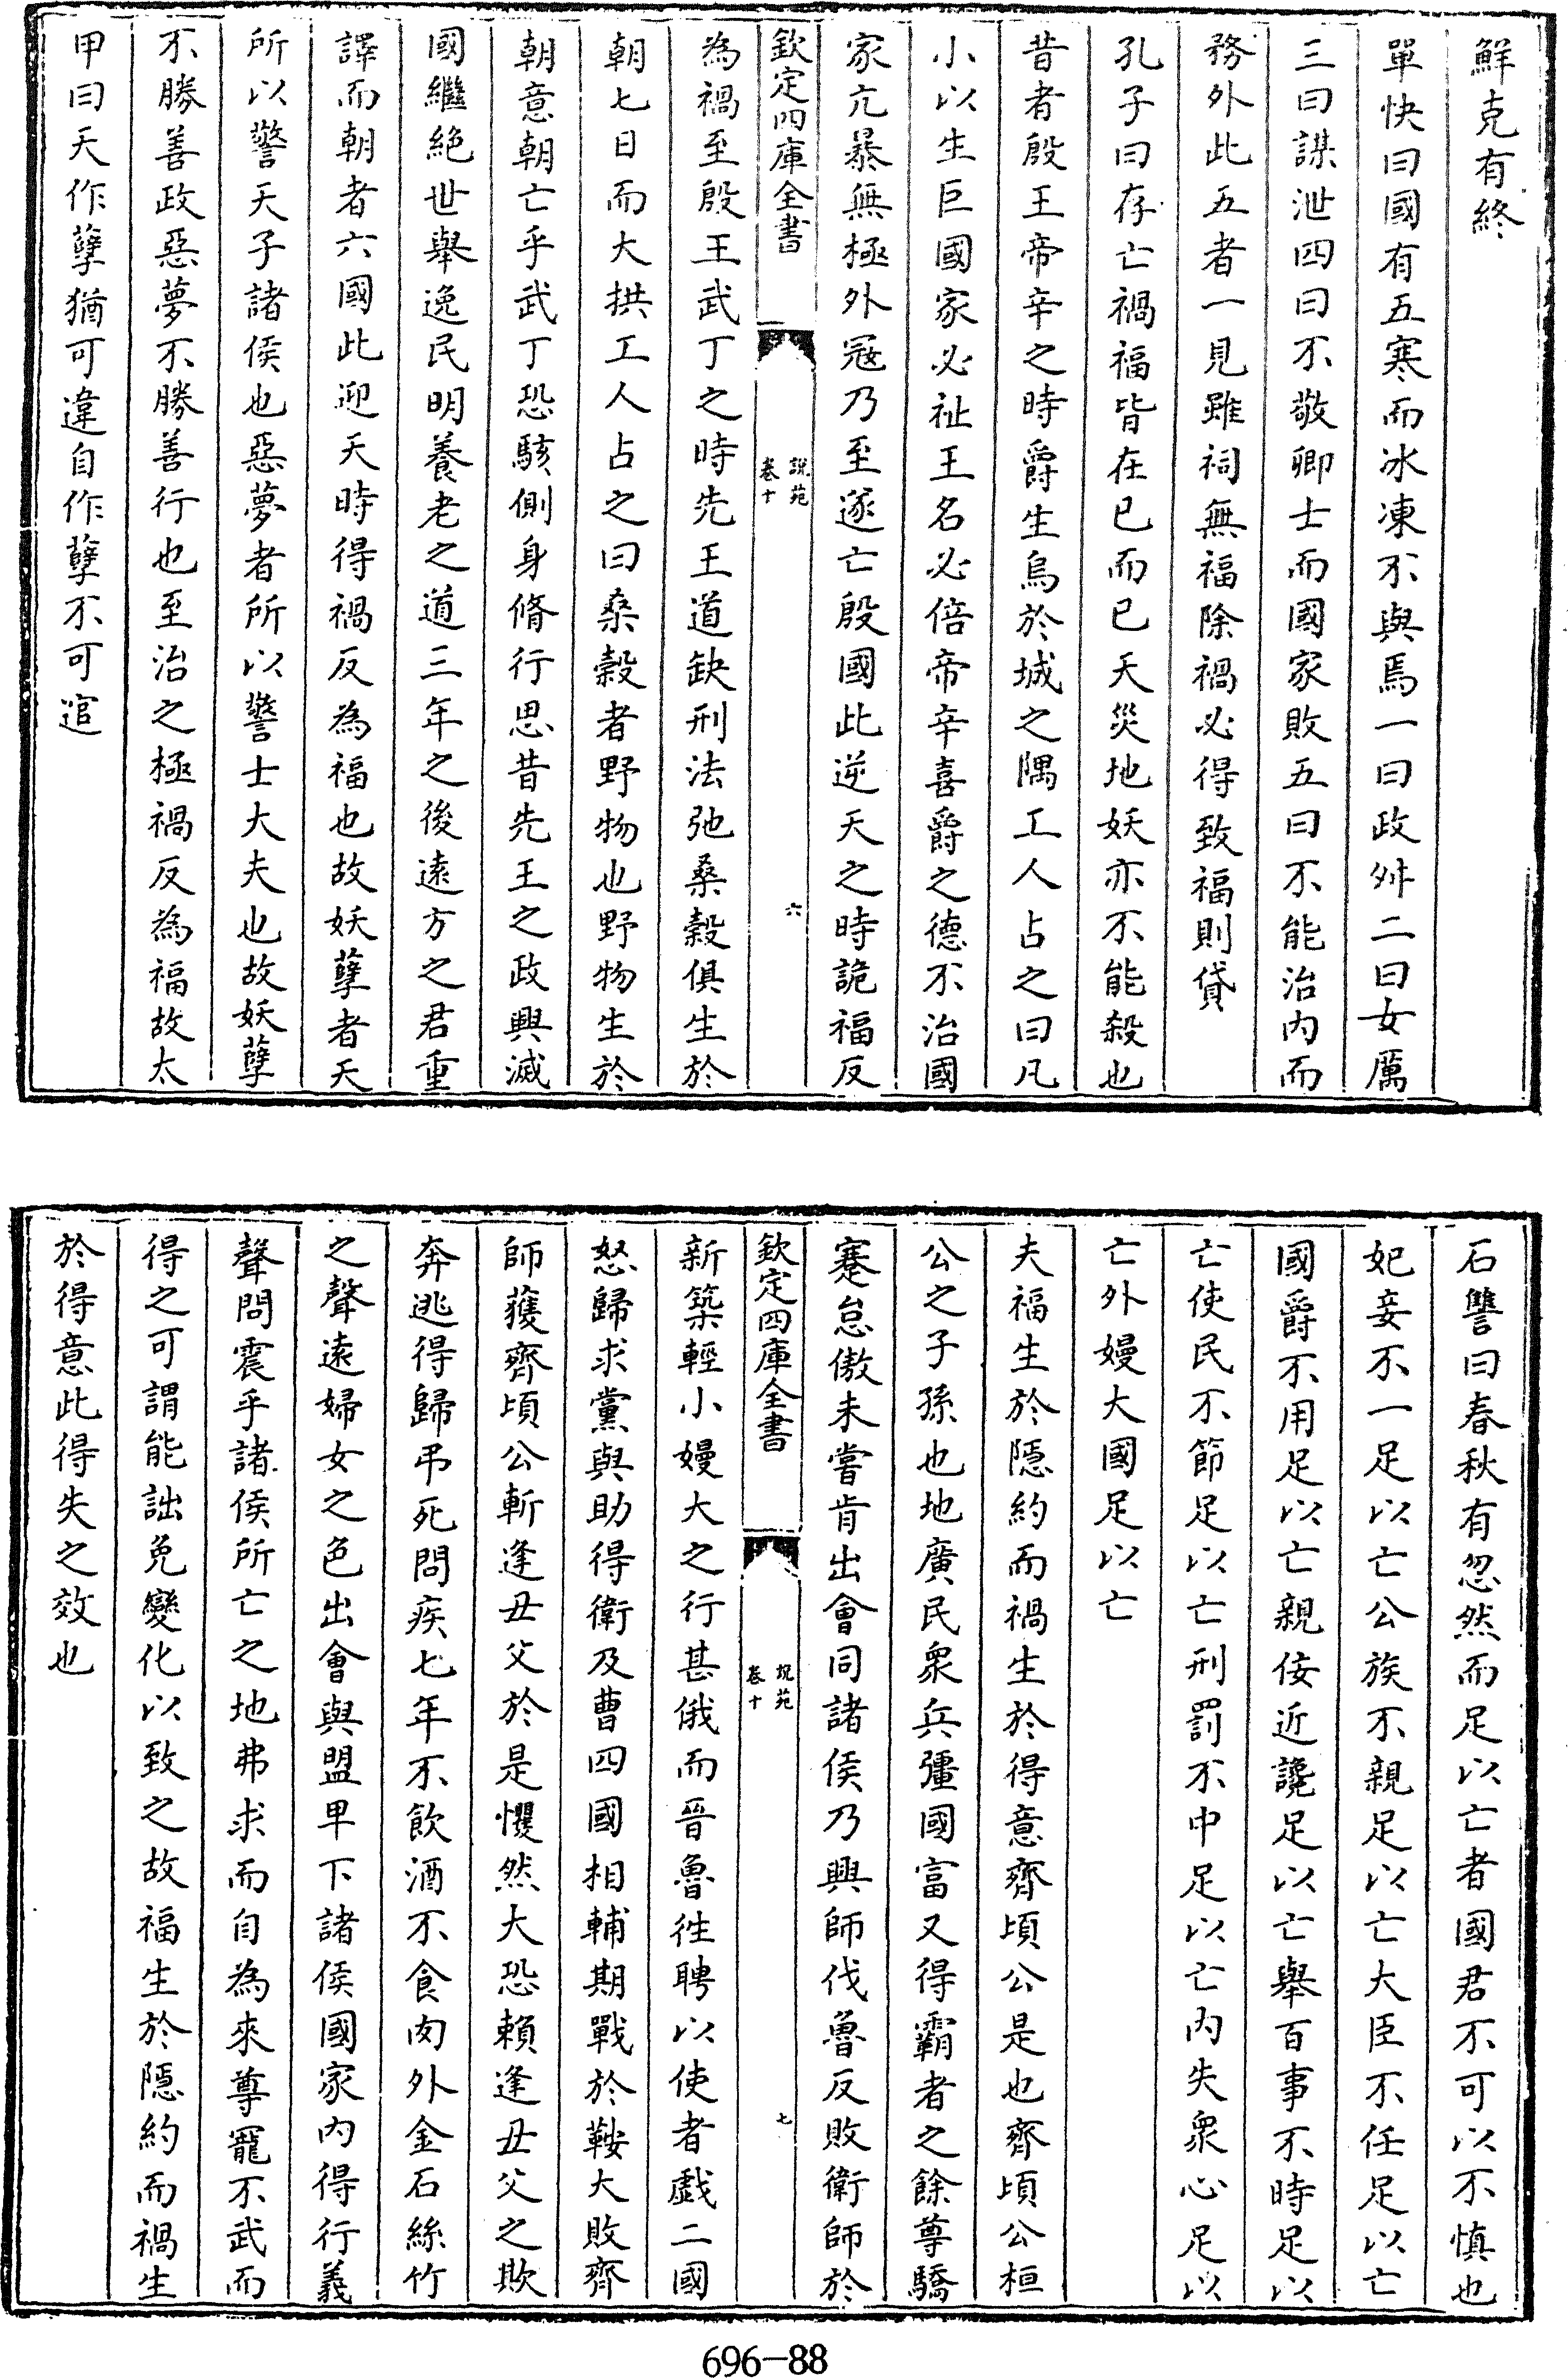 鮮克有終
單快曰國有五寒而冰凍不與焉一曰政舛二曰女厲
三曰謀泄四曰不敬卿士而國家敗五曰不能治內而
務外此五者一見雖祠無福除禍必得致福則貸
孔子曰存亡禍福皆在已而已天災地妖亦不能殺也
昔者殷王帝辛之時爵生烏於城之隅工人占之曰凡
小以生巨國家必祉王名必倍帝辛喜爵之德不治國
家亢暴無極外冦乃至遂亡殷國此逆天之時詭福反
欽定四庫全書
說苑
卷十
六
為禍至殷王武丁之時先王道缺刑法弛桑榖俱生於
朝七日而大拱工人占之曰桑榖者野物也野物生於
朝意朝亡乎武丁恐駭側身脩行思昔先王之政興滅
國繼絶世舉逸民明養老之道三年之後逺方之君重
譯而朝者六國此迎天時得禍反為福也故妖孽者天
所以警天子諸侯也惡夢者所以警士大夫也故妖孽
不勝善政惡夢不勝善行也至治之極禍反為福故太
甲曰天作孽猶可違自作孽不可逭
石讐曰春秋有忽然而足以亡者國君不可以不慎也
妃妾不一足以亡公族不親足以亡大臣不任足以亡
國爵不用足以亡親佞近讒足以亡舉百事不時足以
亡使民不節足以亡刑罰不中足以亡內失衆心足以
亡外嫚大國足以亡
夫福生於隱約而禍生於得意齊頃公是也齊頃公桓
公之子孫也地廣民衆兵彊國富又得霸者之餘尊驕
蹇怠傲未嘗肯出會同諸侯乃興師伐魯反敗衛師於
欽定四庫全書
說苑
卷十
七
新築輕小嫚大之行甚俄而晉魯徃聘以使者戲二國
怒歸求黨與助得衛及曹四國相輔期戰於鞍大敗齊
師獲齊頃公斬逢丑父於是懼然大恐賴逢丑父之欺
奔逃得歸弔死問疾七年不飲酒不食肉外金石絲竹
之聲逺婦女之色出會與盟卑下諸侯國家內得行義
聲問震乎諸侯所亡之地弗求而自為來尊寵不武而
得之可謂能詘免變化以致之故福生於隱約而禍生
於得意此得失之效也
696-88